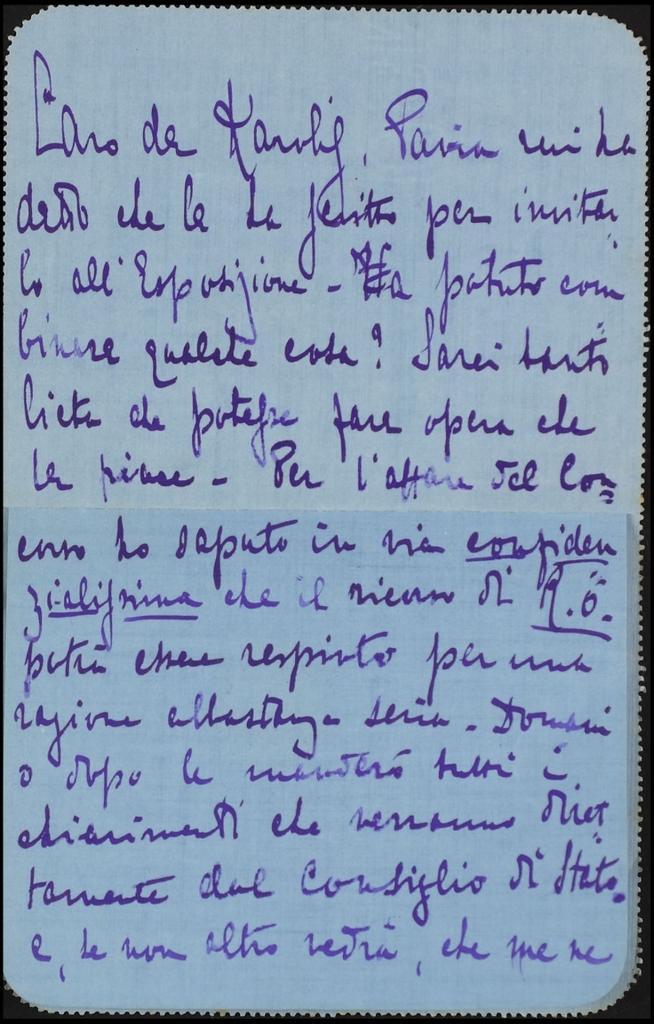 Caro de Karolis, Pavia mi ha
detto che le ha scritto per invitar
lo all'Esposizione - Ha potuto com
binare qualche cosa? Sarei tanto
lieta de potesse fare opera che
le piace - Per l'affare del Con=
corso ho saputo in via confiden
zialissima che il ricorso di R.O.
potrà essere respinto per una
ragione abbastanza seria. Domani
o dopo le manderò tutti i
chiarimenti che verranno diret
tamente dal Consiglio di Stato.
e, se non altro vedrà, che me ne